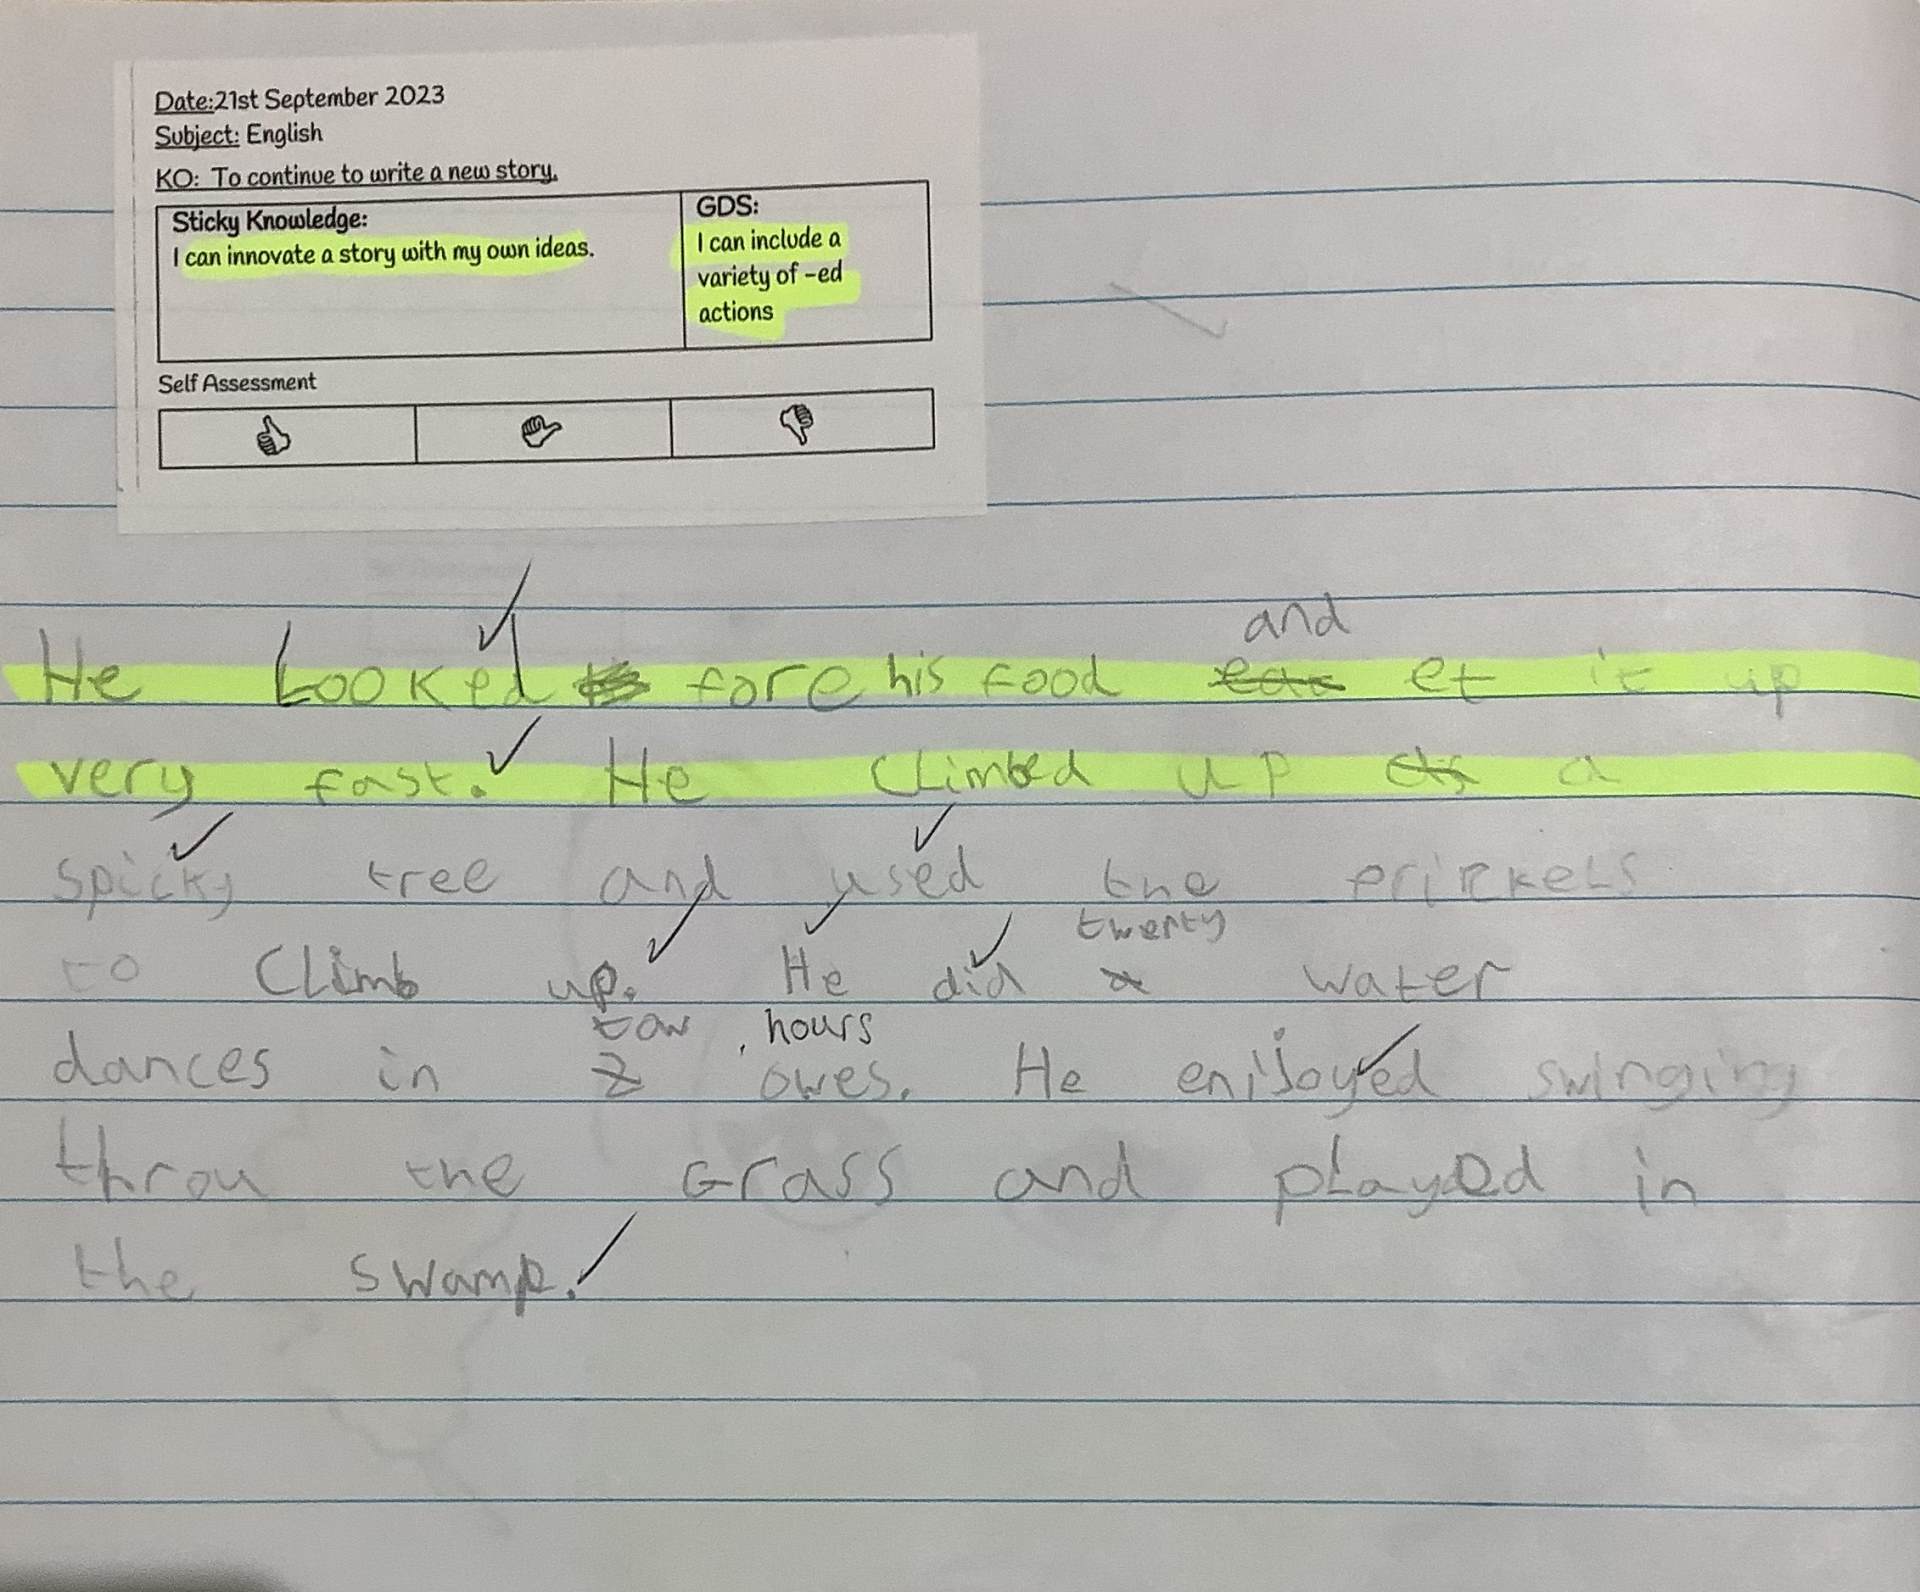 Date:21st September 2023
Subject: English
KO: To continue to write a new story.
Sticky Knowledge:
I can innovate a story with my own ideas.
GDS:
I can include a
variety of -ed
actions
Self Assessment
and
He Looked fore his food et it up
very fast. He climbed up a
spicky tree and used the prickels
twenty
to climb up. He did water
tow , hours
dances in 2 owes. He enijoyed swinging
throu the Grass and played in
the swamp.